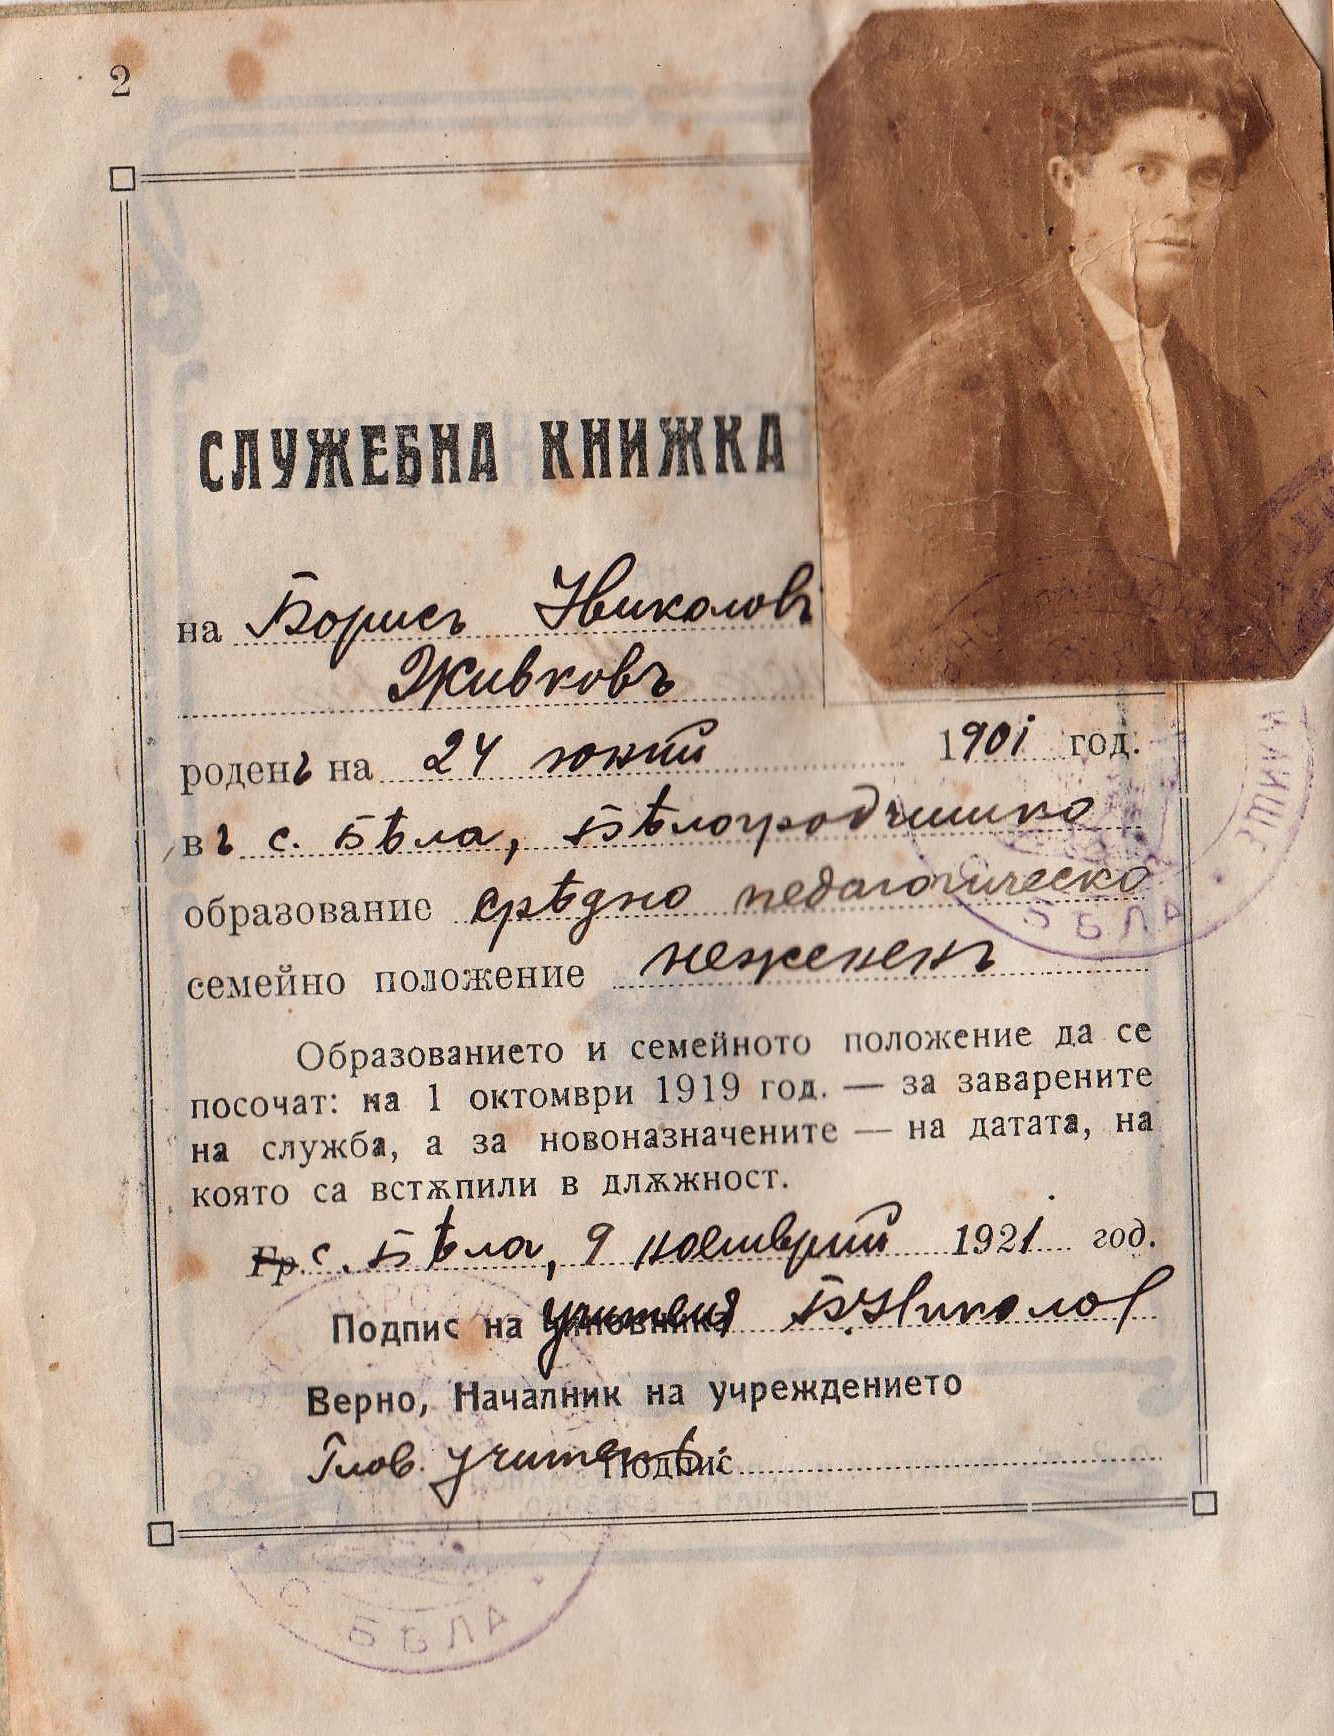 2
СЛУЖЕБНА КНИЖКА
на Борисъ Николовъ
Живковъ
роденъ на 24 юний 1901 год.
въ с. Бѣла, Бѣлоградчишко
образование срѣдно педагогическо
семейно положение неженень
Образованието и семейното положение да се
посочат: на 1 октомври 1919 год. — за заварените
на служба, а за новоназначените — на датата, на
която са встѫпили в длѫжност.
Гр. с. Бѣла, 9 ноемврий 1921 год.
Подпис на чиновника учителя Б. Николов
Верно, Началник на учреждението
Глав. учитель: Подпис
С. БѢЛА
С. БѢЛА